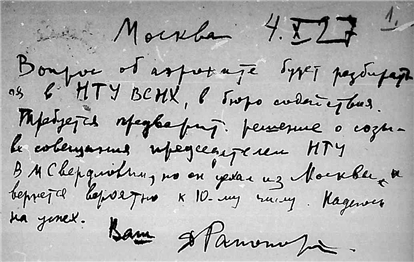 1.
Москва 4.X 27
Вопрос об аэроните будет разбирать
ся в НТУ ВСНХ, в бюро содействия.
Требуется предварит. решение о созы-
ве совещания председателем НТУ
В М Свердловым, но он уехал из Москвы, и
вернется вероятно к 10-му числу. Надеюсь
на успех.
Ваш